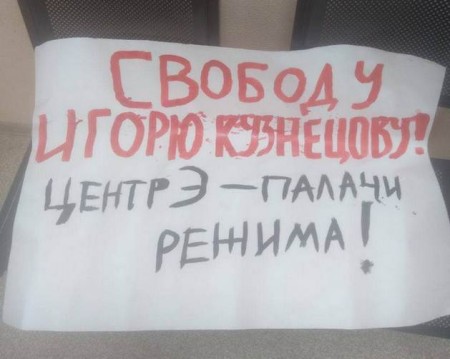 СВОБОДУ
ИГОРЮ КУЗНЕЦОВУ!
ЦЕНТР Э — ПАЛАЧИ
РЕЖИМА!